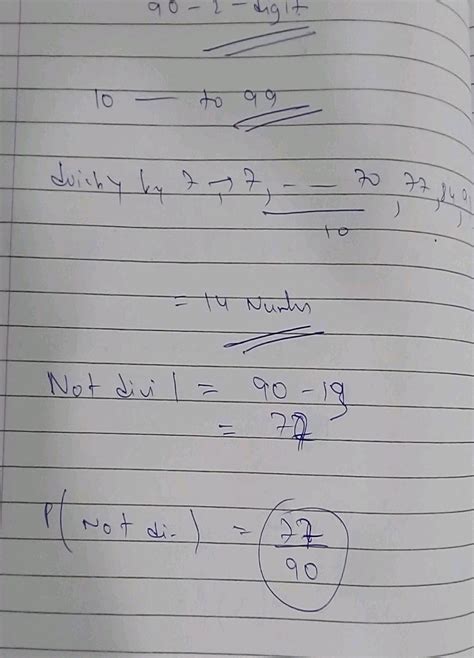 90 - 2 - digit
10 — to 99
by 7 → 7, - - 70, 77, 84,
10
= 14 Numbs
Not divi | = 90 - 13
= 77
P( Not di- ) = 77
90